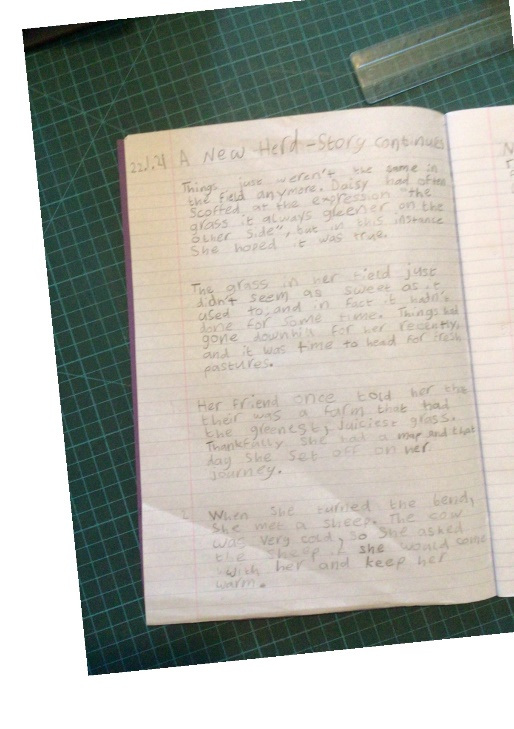 22.1.21 A New Herd-Story continues
Things just weren't the same in
the field anymore. Daisy had often
scoffed at the expression "the
grass it always gleener on the
other side", but in this instance
She hoped it was true.
The grass in her field just
didn't seem as sweet as it
used to, and in fact it hadn't
done for some time. Things had
gone downhill for her recently,
and it was time to head for fresh
pastures.
Her friend once told her that
their was a farm that had
the greenest, juiciest grass.
Thankfully she had a map and that
day she set off on her
journey.
When she turned the bend,
she met a sheep. The cow
was very cold, so she asked
the sheep if she would come
with her and keep her
warm.